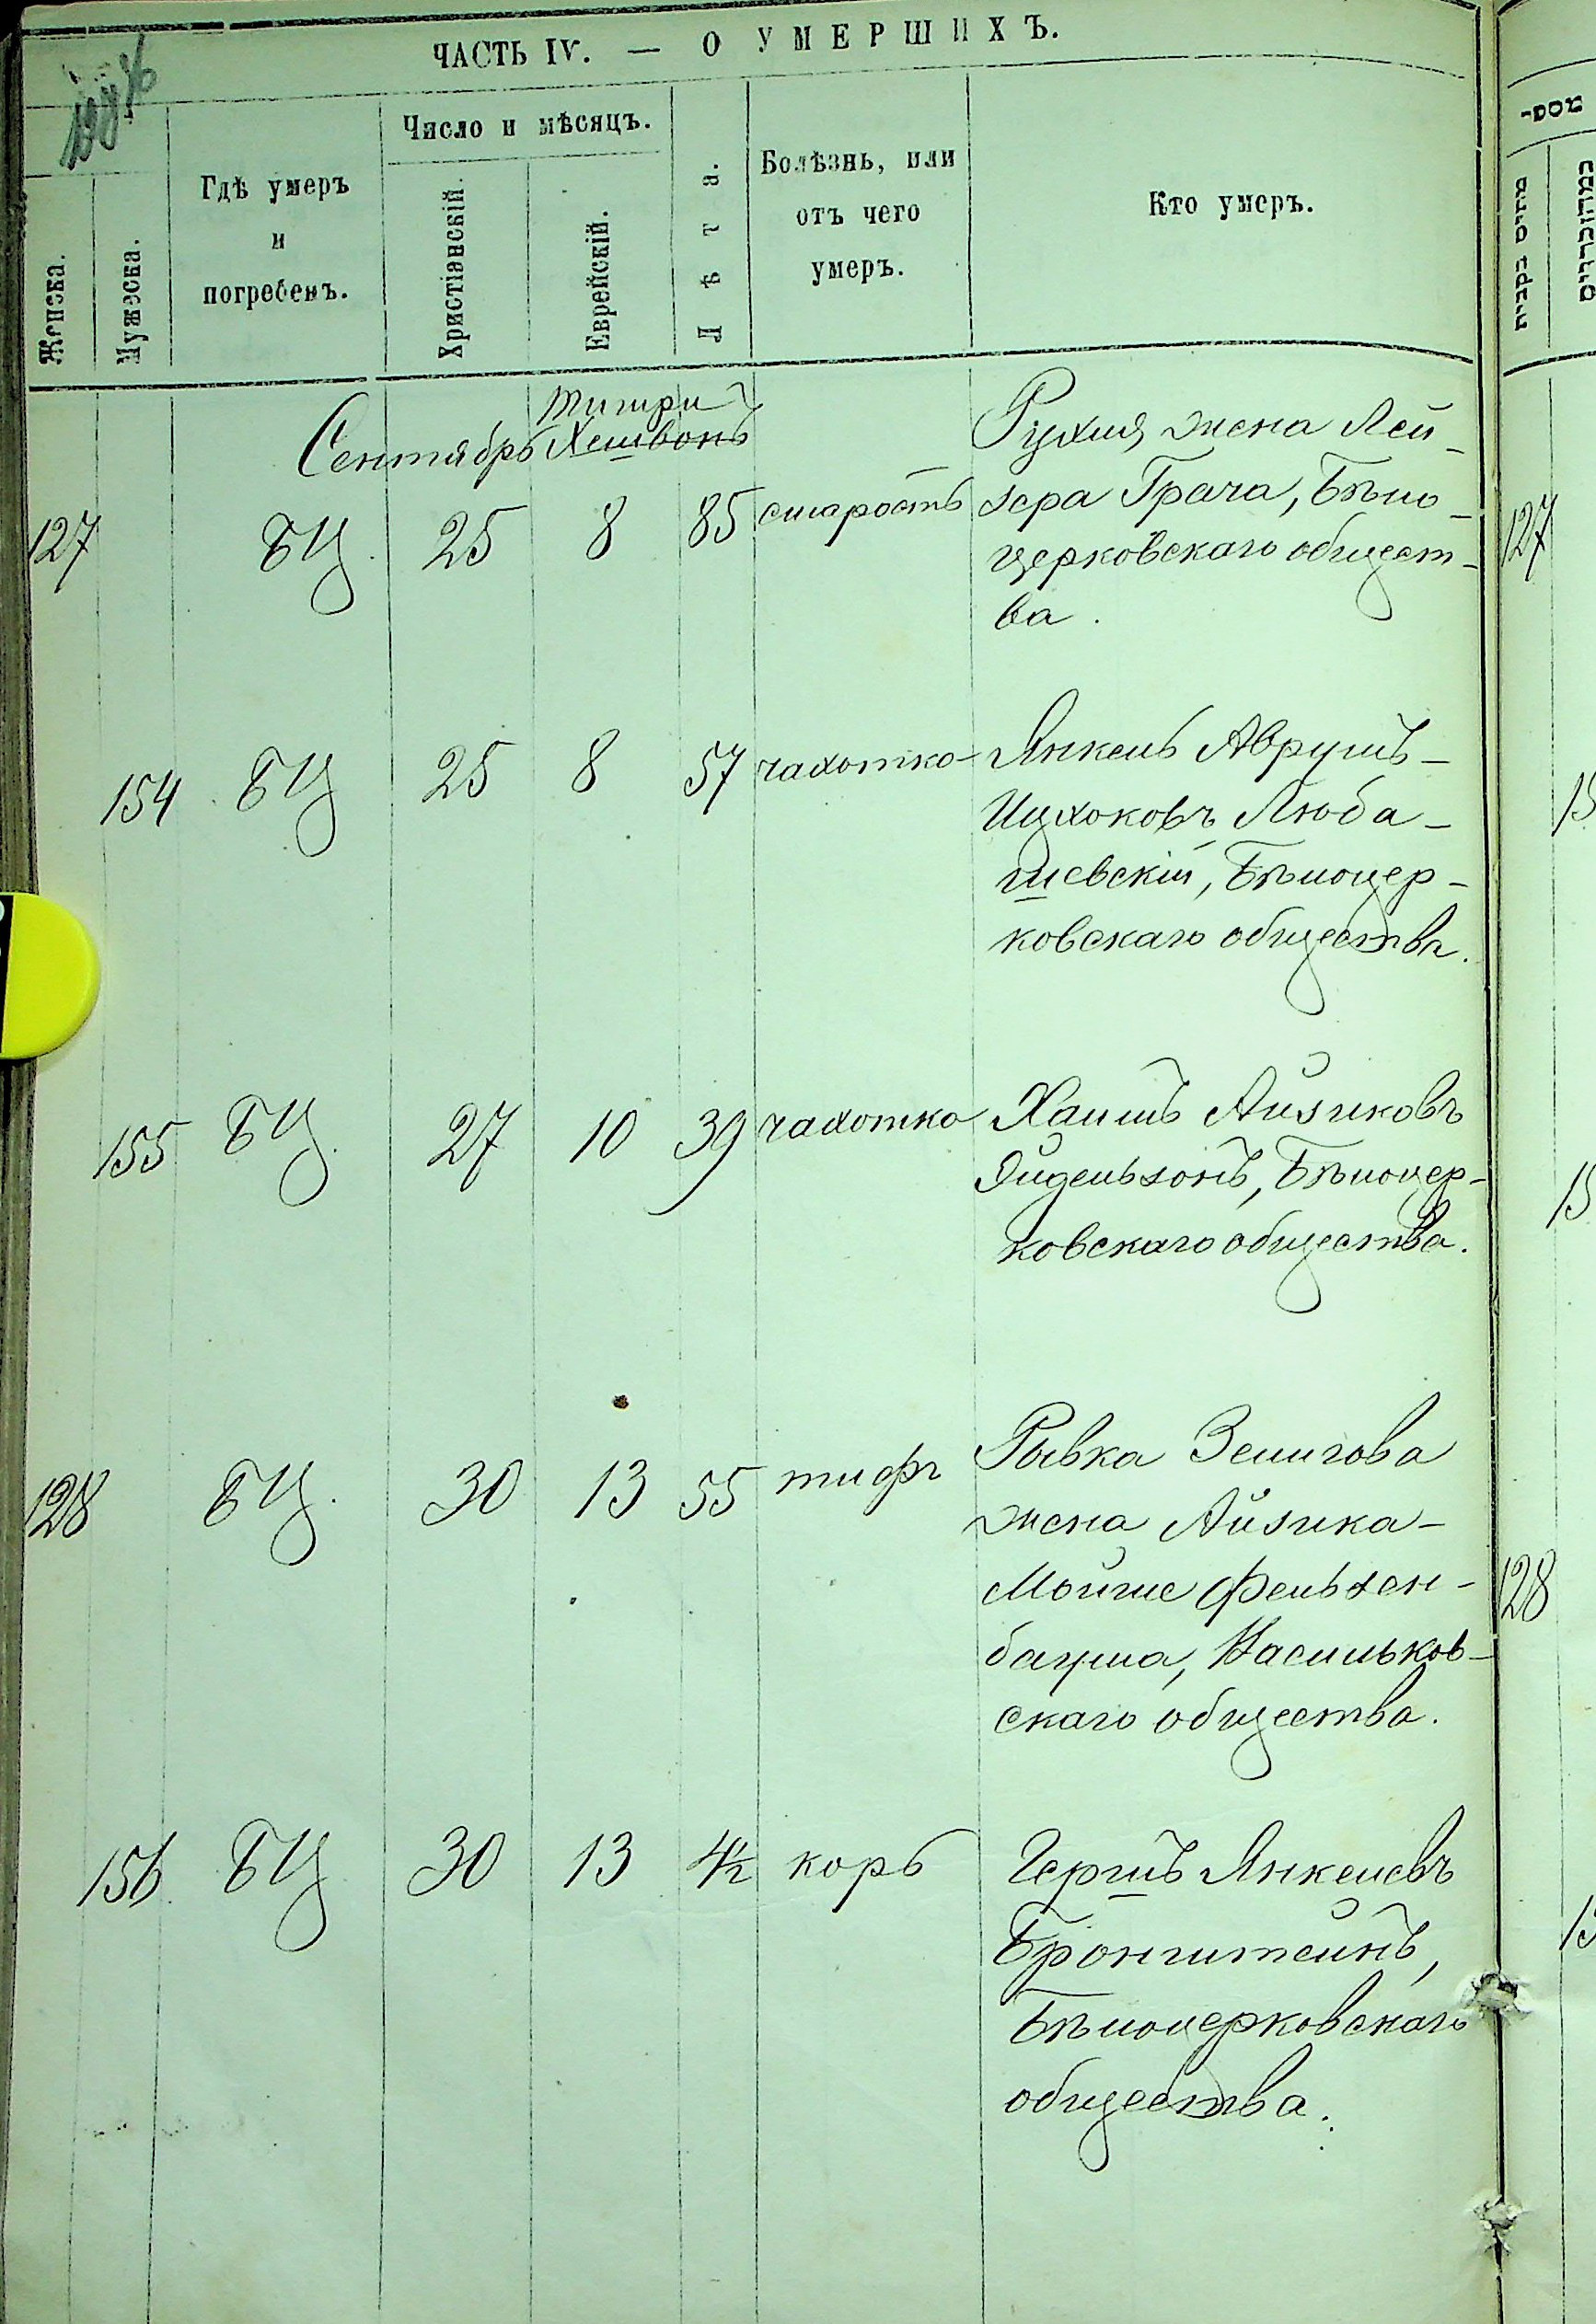 ЧАСТЬ IV. — О УМЕРШИХЪ.
Женска.
Мужеска.
Гдѣ умеръ
и
погребенъ.
Число и мѣсяцъ.
Христіанскій.
Еврейскій.
Лѣта.
Болѣзнь, или
отъ чего
умеръ.
Кто умеръ.
Тишри
Сентябрь Хешвонъ
127 БЦ. 25 8 85 старость
Рухля жена Лей-
зера Грача, Бѣло-
церковскаго общест-
ва.
154 БЦ 25 8 57 чахотка
Янкель Аврумъ-
Ицхоковъ Люба-
шевскій, Бѣлоцер-
ковскаго общества.
155 БЦ. 27 10 39 чахотка
Хаимъ Айзиковъ
Эйдельзонъ, Бѣлоцер-
ковскаго общества.
128 БЦ. 30 13 55 тифъ
Рывка Зелигова
жена Айзика-
Мойше Фельзен-
баума, Васильков-
скаго общества.
156 БЦ 30 13 4½ корь
Гершъ Янкелевъ
Бронштейнъ,
Бѣлоцерковскаго
общества.
127
128